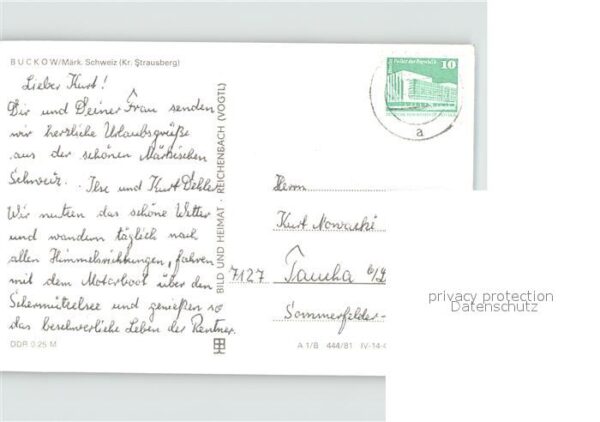 BUCKOW/Märk. Schweiz (Kr. Strausberg)
Lieber Kurt!
Dir und Deiner Frau senden
wir herzliche Urlaubsgrüße
aus der schönen Märkischen
Schweiz. Ilse und Kurt
Wir nutzen das schöne Wetter
und wandern täglich nach
allen Himmelsrichtungen, fahren
mit dem Motorboot über den
Schermützelsee und genießen so
das beschwerliche Leben der Rentner.
DDR 0.25 M
BILD UND HEIMAT · REICHENBACH (VOGTL)
10
a
Herrn
Kurt Nowacki
7127 Taucha b/L
Sommerfelder-
A 1/B 444/81 IV-14-
privacy protection
Datenschutz